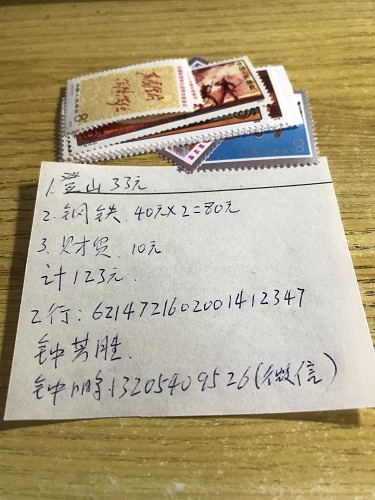 8
1.登山 33元.
2.钢铁. 40元×2=80元
3.财贸. 10元
计123元.
工行: 6214721602001412347
钟 胜.
钟 13205409526(微信)